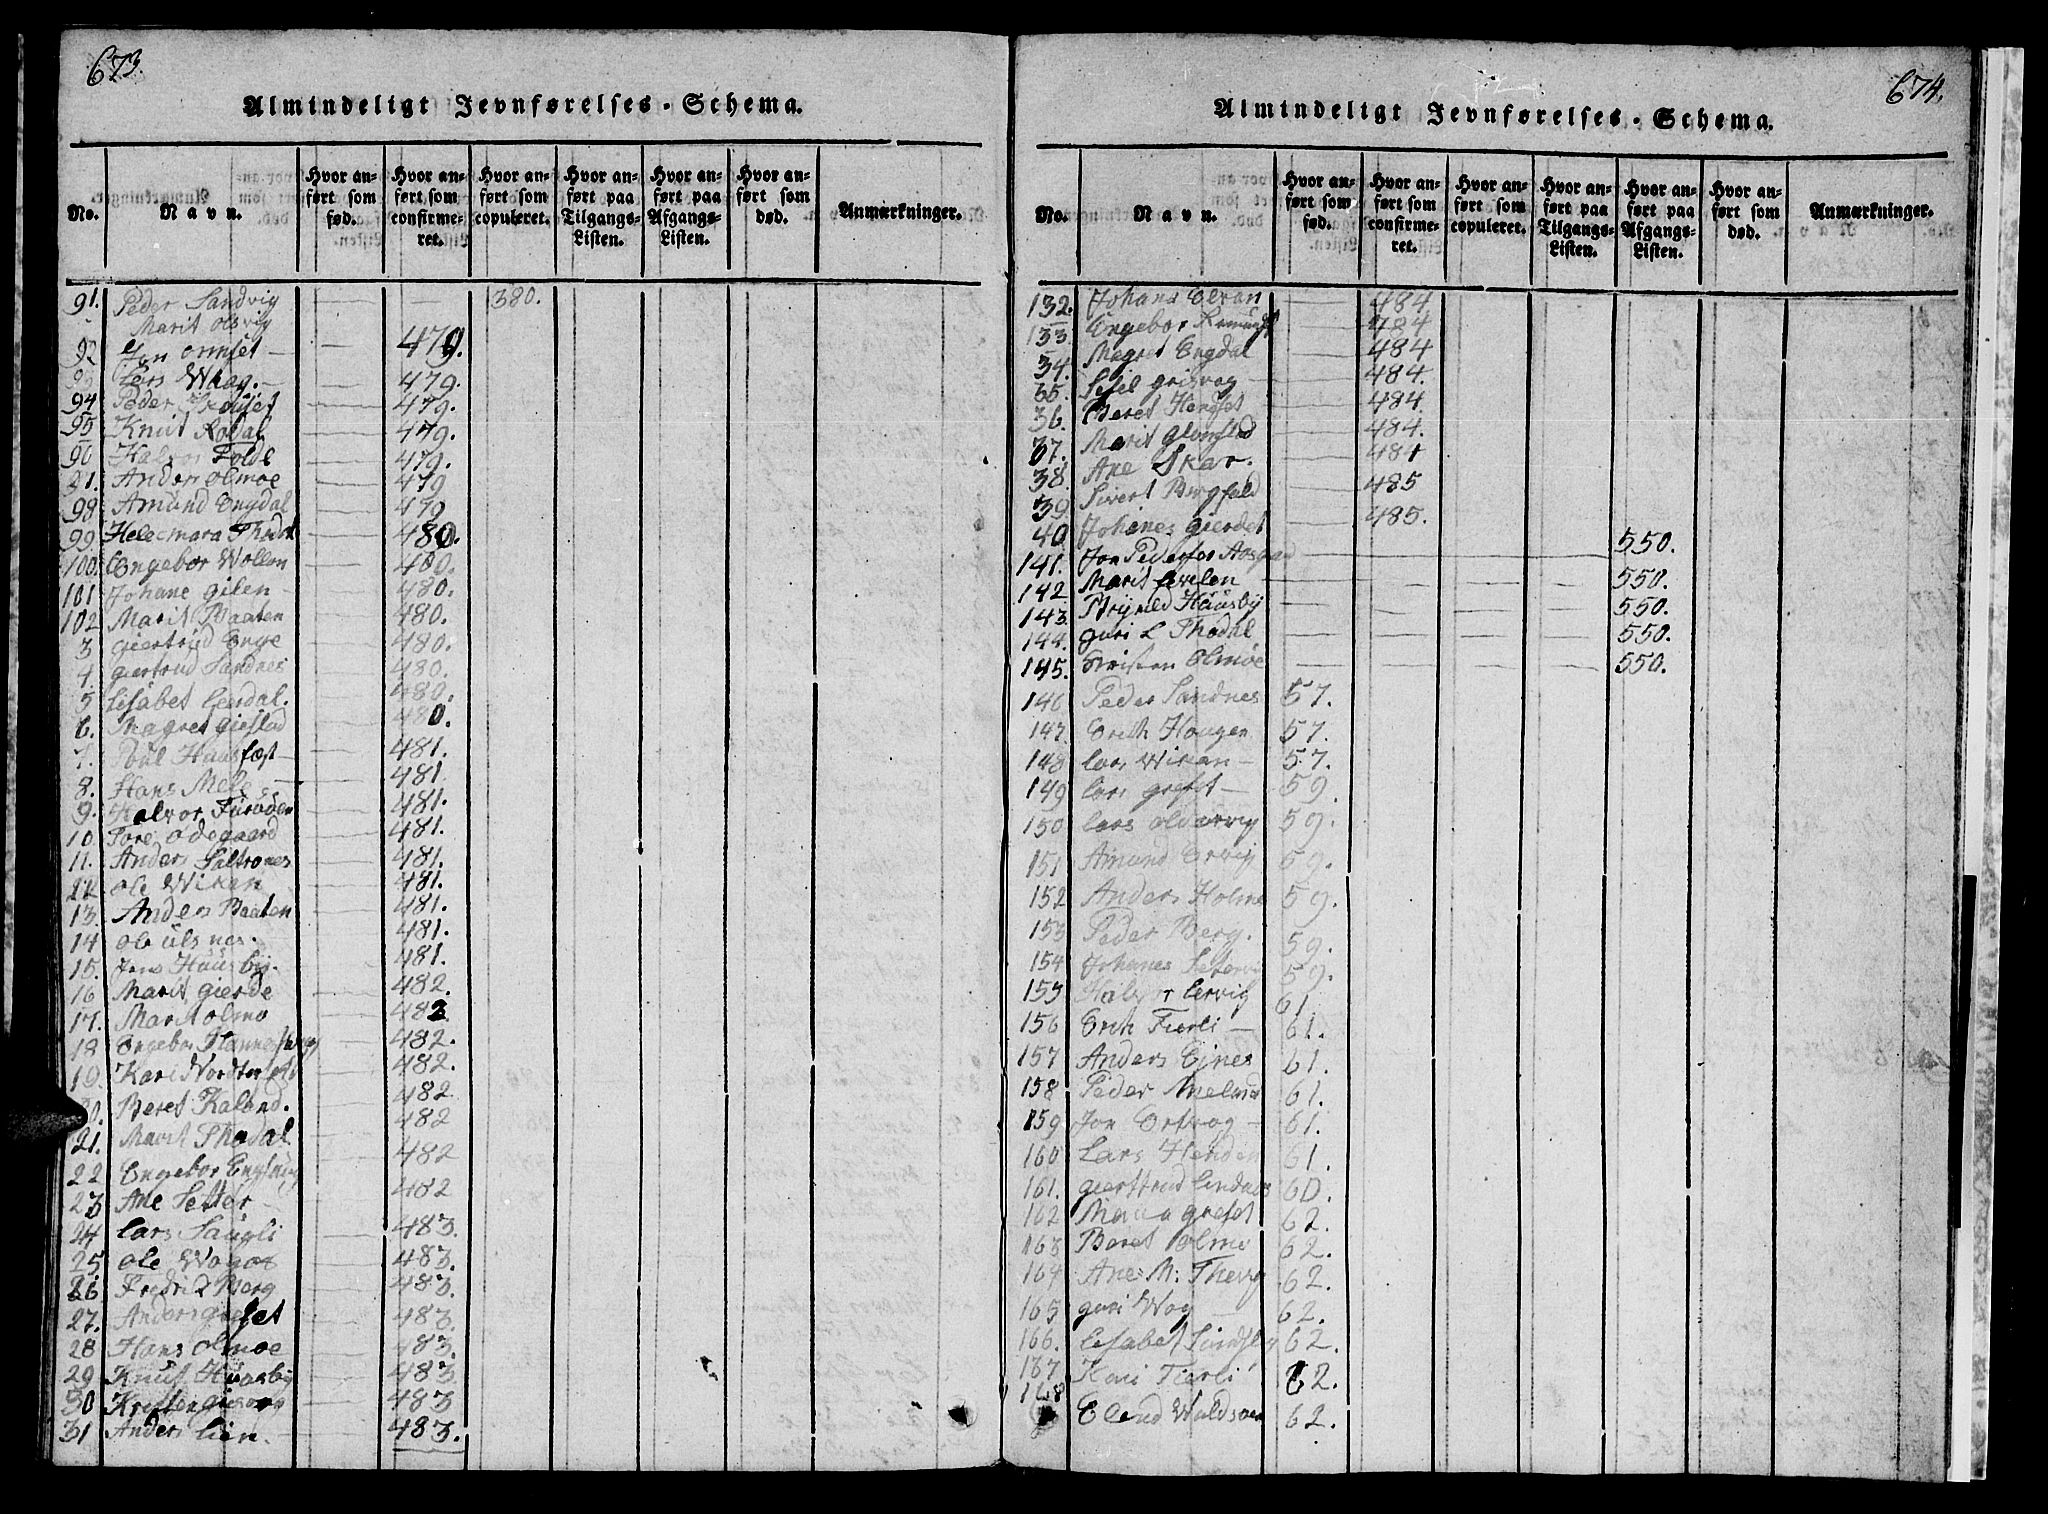 673.
Almindeligt Jevnførelses-Schema.
No. Navn. Hvor anført som fød. Hvor anført som confirmeret. Hvor anført som copuleret. Hvor anført paa Tilgangs-Listen. Hvor anført paa Afgangs-Listen. Hvor anført som død. Anmærkninger.
91. Peder Sandvig 380.
Marit olsvig
92 Jon onnset 479.
93 Lars Waag. 479.
94 Peder 479.
95 Knut Rodal 479.
96 Halvor Folde 479.
97. Anders olmoe 479
98 Amund Engdal 479
99 Helecmara Thodal 480.
100. Engebor Wollan 480.
101 Johane gilen 480.
102 Marit Baaten 480.
3 giertrud Enge 480.
4. giertrud Sandnes 480.
5 Lisabet Leerdal. 480.
6. Magret gielstad 480.
7. Poul 481.
8. Hans Mele 481
9. Halvor Furuden 481.
10. Tore odegaard 481.
11. Anders Saltrønes 481.
12 ole Wikan 481.
13. Anders Baaten 481.
14 ole ulsnes. 481.
15. Jens Huusby. 481.
16 Marit gierde 482.
17. Marit olmo 482
18 Engebor 482.
19. Kari 482.
20. Beret Kaland. 482
21. Marit Thodal 482
22 Engebor 482
23 Ane Setter 482
24 Lars Saugli 483.
25 ole Wagos 483.
26 Fredrik Berg 483.
27. Anders grefset 483.
28 Hans olmoe 483.
29 Knut Huusby 483
30 Kristen 483
31 Anders Lien 483.
674.
Almindeligt Jevnførelses-Schema.
No. Navn. Hvor anført som fød. Hvor anført som confirmeret. Hvor anført som copuleret. Hvor anført paa Tilgangs-Listen. Hvor anført paa Afgangs-Listen. Hvor anført som død. Anmærkninger.
132. Johans 484
133 Engebor 484
34. Magret Engdal 484
35. Sisil grisvag 484.
36. Beret Hendset 484.
37. Marit glomstad 484.
38. Ane Skar. 484
39 Sivert Bergfald 485
40 Johanes gierdet 485.
141. Jon Pedersen 550.
142 Marit 550.
143. Bryneld Huusby 550.
144. guri L Thodal 550.
145. Kristen olmoe 550.
146 Peder Sandnes 57.
147 Erich Haugen 57.
148 Lars Wikan 57.
149 Lars grefset 59.
150 Lars oldervig 59.
151 Amund Ervig 59.
152 Anders Holme 59.
153 Peder Berg. 59.
154 Johanes 59.
155 Halvor Lervig 61
156 Erik Tierli 61.
157 Anders Eines 61.
158 Peder 61.
159 Jon Ertvag 61.
160 Lars Henden 61.
161. giertrud 60.
162 Maria grefset 62.
163 Beret olmo 62.
164 Ane M: 62.
165 guri Wag 62.
166. Lisabet 62.
167 Kari Tierli 62.
168 Elend 62.